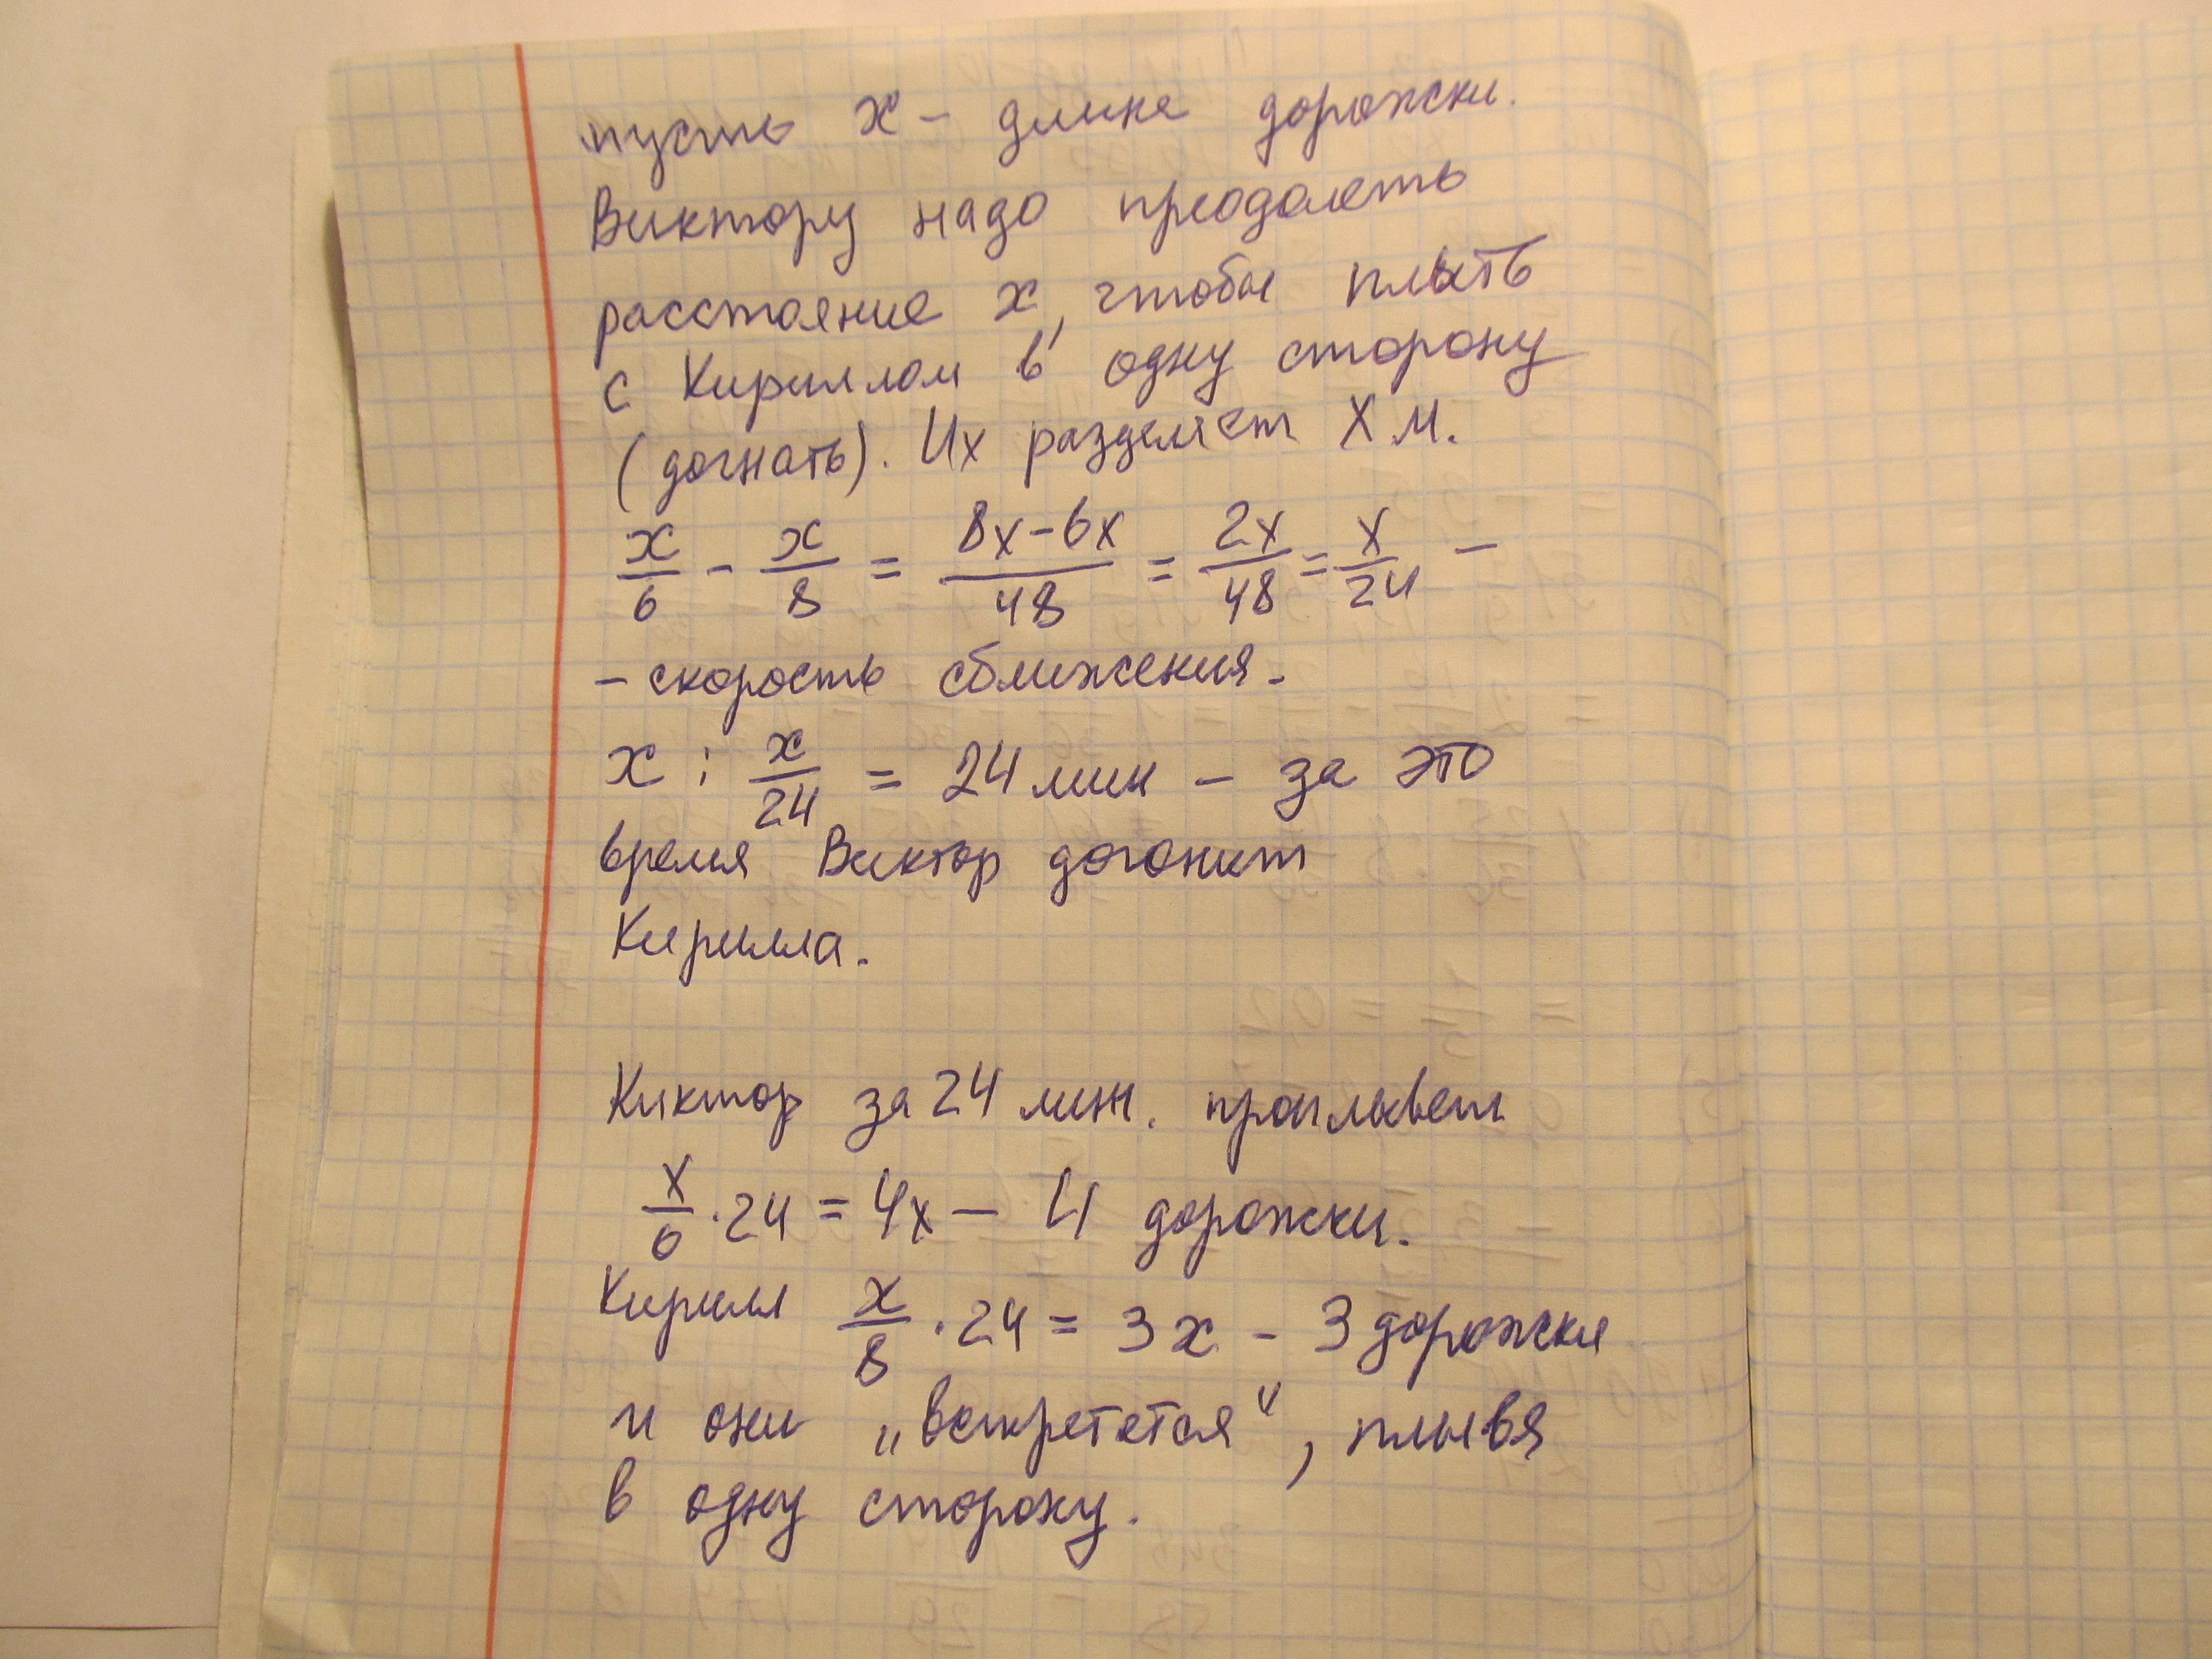 пусть x – длина дорожки.
Виктору надо преодолеть
расстояние x, чтобы плыть
с Кириллом в одну сторону
(догнать). Их разделяет X м.
x/6 - x/8 = (8x-6x)/48 = 2x/48 = x/24 –
– скорость сближения.
x : x/24 = 24 мин – за это
время Виктор догонит
Кирилла.
Киктор за 24 мин. проплывет
x/6 · 24 = 4x – 4 дорожки.
Кирилл x/8 · 24 = 3x – 3 дорожки
и они „встретятся“, плывя
в одну сторону.